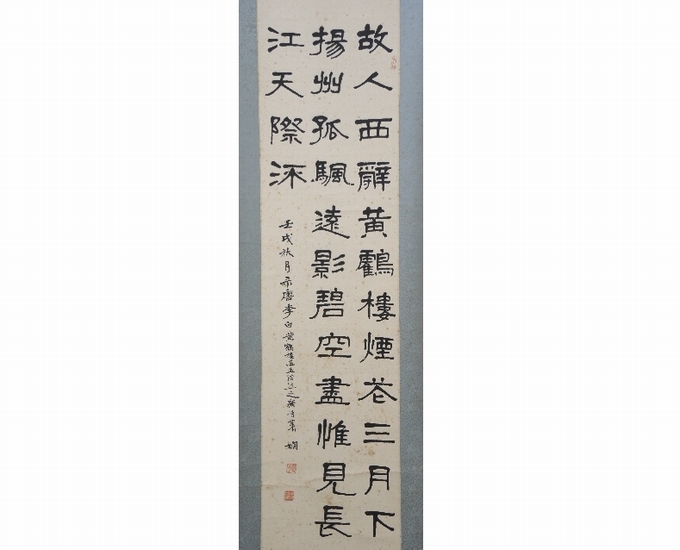 故人西辭黃鶴樓煙花三月下
揚州孤颿遠影碧空盡惟見長
江天際流
壬戌秋月录唐李白黄鶴樓送孟浩然之廣陵 娟